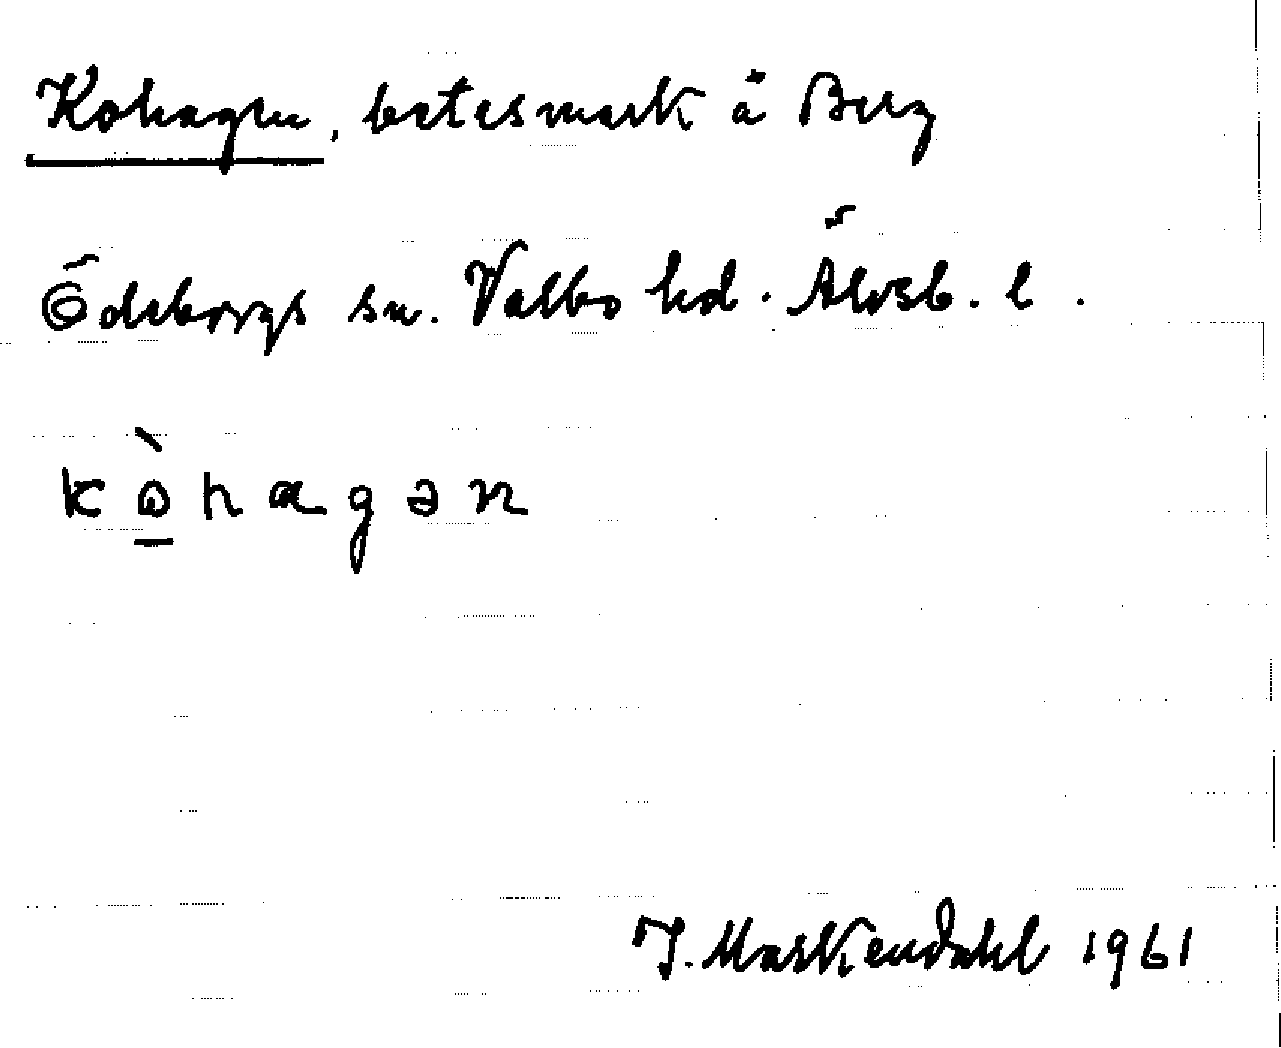 Kohagen, betesmark å Berg
Ödeborgs sn. Valbo hd. Älvsb. l.
kò̱hagən
J. Markendahl 1961